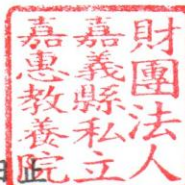 財團法人
嘉義縣私立
嘉惠教養院